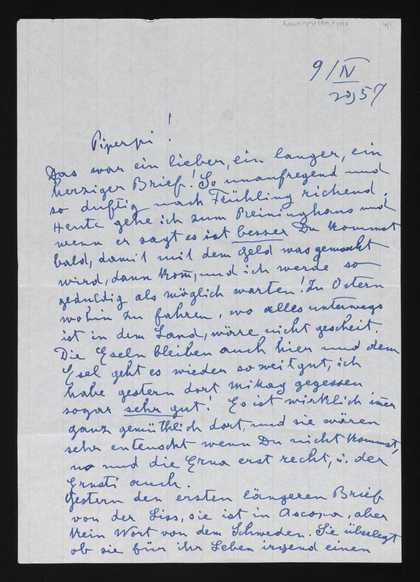 9/IV
1957
Piperpi!
Das war ein lieber, ein langer, ein
herziger Brief! So unaufregend und
so duftig nach Frühling riechend.
Heute gehe ich zum Reininghaus und
wenn er sagt es ist besser Du kommst
bald, damit mit dem Geld was gemacht
wird, dann kom, und ich werde so
geduldig als möglich warten! Zu Ostern
wohin zu fahren, wo alles unterwegs
ist in dem Land, wäre nicht gescheit.
Die Eseln bleiben auch hier und dem
Esel geht es wieder soweit gut, ich
habe gestern dort mittag gegessen
sogar sehr gut! Es ist wirklich
ganz gemüthlich dort, und sie wären
sehr enteuscht wenn Du nicht kommst,
na und die Erna erst recht, u. der
Ernsti auch.
Gestern den ersten längeren Brief
von der Liss, sie ist in Ascona, aber
kein Wort von dem Schweden. Sie überlegt
ob sie für ihr Leben irgend einen